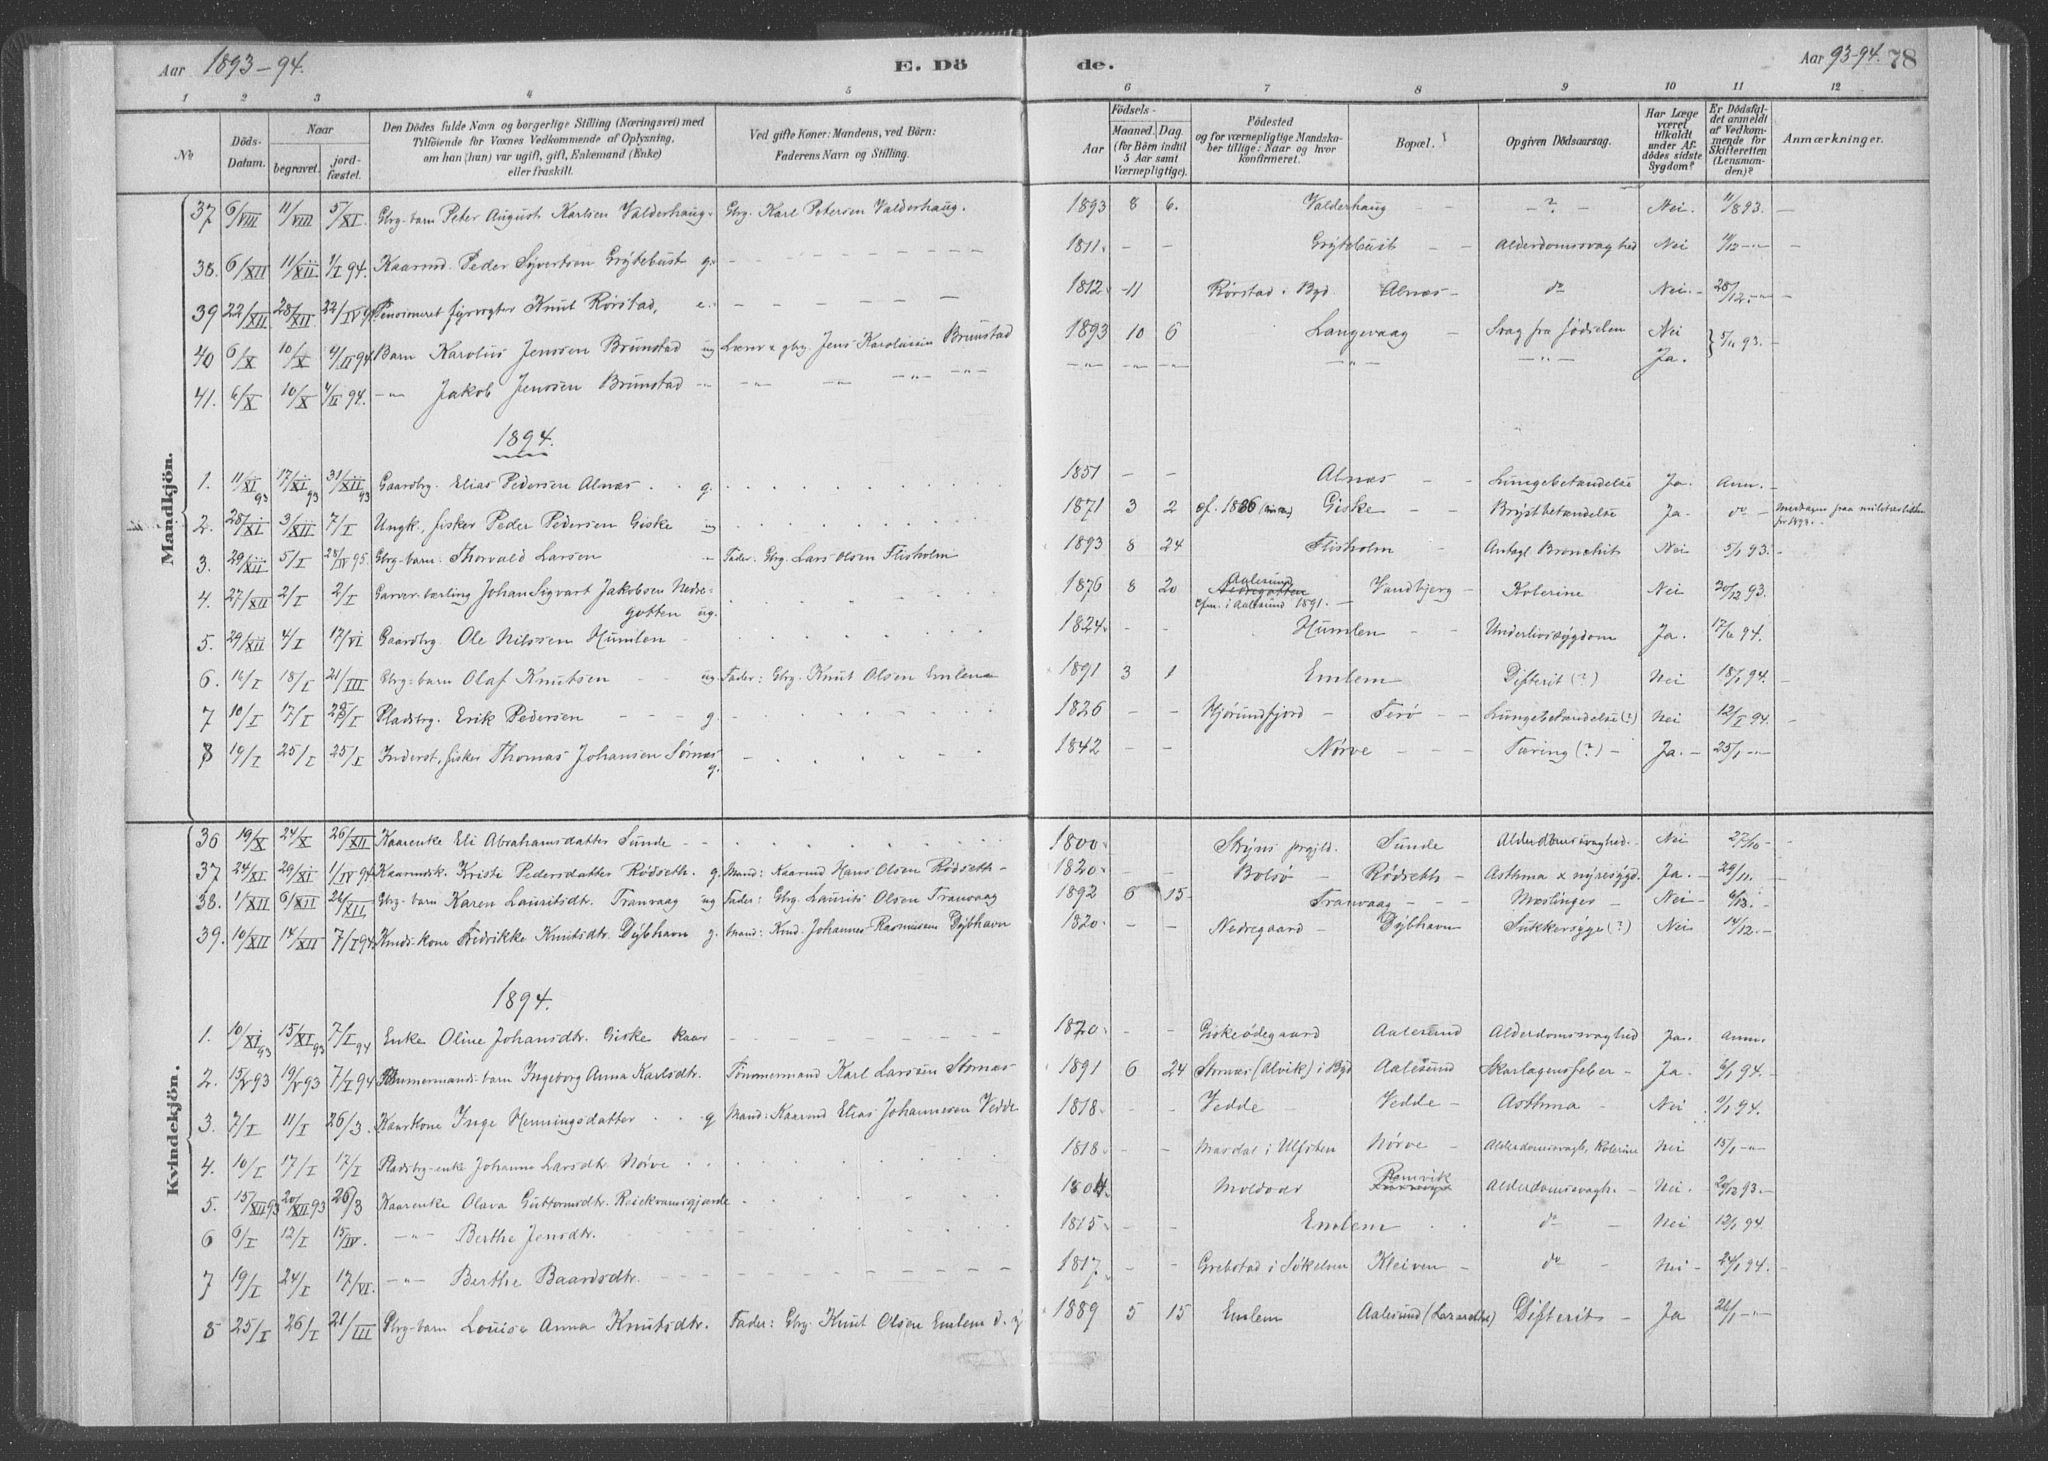 Aar 1893-94. E. Dö de. Aar 93-94. 78
1 2 3 4 5 6 7 8 9 10 11 12
No Döds-Datum. Naar begravet. jordfæstet. Den Dödes fulde Navn og borgerlige Stilling (Næringsvei) med Tilföiende för Voxnes Vedkommende af Oplysning, om han (hun) var ugift, gift, Enkemand (Enke) eller fraskilt. Ved gifte Koner: Mandens, ved Börn: Faderens Navn og Stilling. Födsels- Aar Maaned. Dag. (for Börn indtil 5 Aar samt Værnepligtige). Födested og for værnepligtige Mandskaber tillige: Naar og hvor konfirmeret. Bopæl. Opgiven Dödsaarsag. Har Læge været tilkaldt under Afdödes sidste Sygdom? Er Dödsfaldet anmeldt af Vedkommende for Skifteretten (Lensmanden)? Anmærkninger.
Mandkjön.
37 6/VIII 11/VIII 5/XI. Gbrg-barn Peter August Karlsen Valderhaug. Gbrg. Karl Petersen Valderhaug. 1893 8 6. Valderhaug - ? - Nei. 11/8 93. -
38. 6/XII 11/XII 1/I 94. Kaarmd. Peder Syvertsen Grytebust g. 1811. - - Grytebust - - Alderdomssvaghed Nei 11/12 -"- -
39 22/XII 28/XII 22/IV 94 Pensioneret fyrvogter Knut Rörstad, e. 1812. -11 Rörstad. Byd Alnæs - do Nei. - 28/12 -"- -
40 6/X 10/X 4/II 94 Barn Karolus Jenssen Brunstad ug Lærer & gbrg. Jens Karolusen Brunstad 1893 10 6 Langevaag - Svag fra fødselen Nei } 5/11 93. -
41. 6/X 10/X 4/II 94. -"- Jakob Jenssen Brunstad -"- -"- -"- -"- -"- -"- -"- -"- -"- -"- Ja.
1894.
1. 11/XI 93 17/XI 93 31/XII 93 Gaardbrg. Elias Pedersen Alnæs. . g. 1851 - - Alnæs - - Lungebetændelse Ja. Anm. -
2. 28/XI 3/XII 7/I Ungk., fisker Peder Pedersen Giske ug 1871 3 2 cf. 1886 Giske - Brystbetændelse Ja. do -
3. 29/XII 5/I 28/IV 95. Gbrg-barn. Thorvald Larsen - Fader. Gbrg. Lars Olsen Flisholm 1893 8 24 Flisholm - Antagl. Bronchit Nei 5/1 93. -
4. 27/XII 2/I 2/I Garver-lærling Johan Sigvart Jakobsen Nedregotten ug. 1876 8 20 Aalesund Nedregotten cfm. i Aalesund 1891. - Vandbjerg - Kolerine Nei 30/12 93. -
5. 29/XII 4/I 17/VI Gaardbrg. Ole Nilssen Humlen - 1824. - - Humlen - - Underlivssygdom Ja. 17/6 94. -
6. 16/I 18/I 21/III Gbrg-barn Olaf Knutsen - - ug. Fader: Gbrg. Knut Olsen Emlem 1891 3 1 Emlem Difterit (?) Nei 18/1 94. -
7 10/I 17/I 29/I Pladsbrg. Erik Pedersen - - - g. 1826 - - Hjørundfjord - Terø - - Lungebetændelse (?) Nei 12/I 94. -
8 19/I 25/I 25/I Inderst, fisker Thomas Johansen Sørnæs g. 1842 - - Nørve - - - Tæring (?) - Ja. - 25/1 -"-
Kvindekjön.
36 19/X 24/X 26/XII Kaarenke Eli Abrahamsdatter Sunde - - 1800. Stryns prgjld. Sunde Alderdomssvaghed. Nei 27/10 -
37 24/XI 29/XI 1/IV 94 Kaarmdsk. Kriste Pedersdatter Rødseth. g. Mand: Kaarmd Hans Olsen Rødseth - 1820. - - Bolsø - Rødseth - Asthma & nyresygd. Ja. - 29/11. -
38. 1/XII 6/XII 26/XII, Gbrg-barn Karen Lauritsdtr. Tranvaag ug Fader: Gbrg. Laurits Olsen Tranvaag 1892 6 15 - Tranvaag - - - Mæslinger - Nei - 6/12. -
39. 10/XII 14/XII 7/I 94 Kmds-kone Fredrikke Knutsdtr. Dybhavn g. Mand: Kmd. Johannes Rasmusen Dybhavn 1820. - - Nedregaard - Dybhavn Sukkersyge (?) Nei 14/12. -
1894.
1. 10/XI 93 15/XI 93 7/I 94 Enke Oline Johansdtr. Giske kaar 1820. - - Giskeødegaard Aalesund Alderdomssvaghed Ja. - Anm. -
2. 15/V 93 19/V 93 7/I 94 Tømmermands-barn Ingeborg Anna Karlsdtr. Tømmermand Karl Larssen Stornæs 1891 6 24 Stornæs (Alvik) i Byd Aalesund Skarlagensfeber - Ja - 6/1 94. -
3. 7/I 11/I 26/3. Kaarkone Inge Henningsdatter . . g Mand: Kaarmd Elias Johannesen Vedde 1818. - - Vedde - Vedde - Asthma - Nei . 9/1 94. -
4. 10/I 17/I 17/I Pladsbrg-enke Johanne Larsdtr. Nørve . . 1818. - - Mardal i Ulfsten Nørve - Alderdomssvagh, Kolerine Nei 15/1 -"- -
5. 15/XII 93 20/XII 93 26/3 Kaarenke Olava Guttormsdtr. Reiekvamsgjærde 1804 Moldvær Ramvik Alderdomssvagh. - Nei. 29/12 93. -
6 6/I 12/I 15/IV. -"- Berthe Jensdtr. 1815. - - Emlem . . do - Nei 12/1 94. -
7 19/I 24/I 17/VI. -"- Berthe Baardsdtr. 1817. - - Grebstad i Søkelven Kleiven - do - Nei - 24/1 94. -
8 25/I 26/I 21/III Gbrg-barn Louise Anna Knutsdtr. Fader: Gbrg. Knut Olsen Emlem 1889 5 15 Emlem Aalesund (Lazarethe) Difterit - Ja 26/1 -"- -